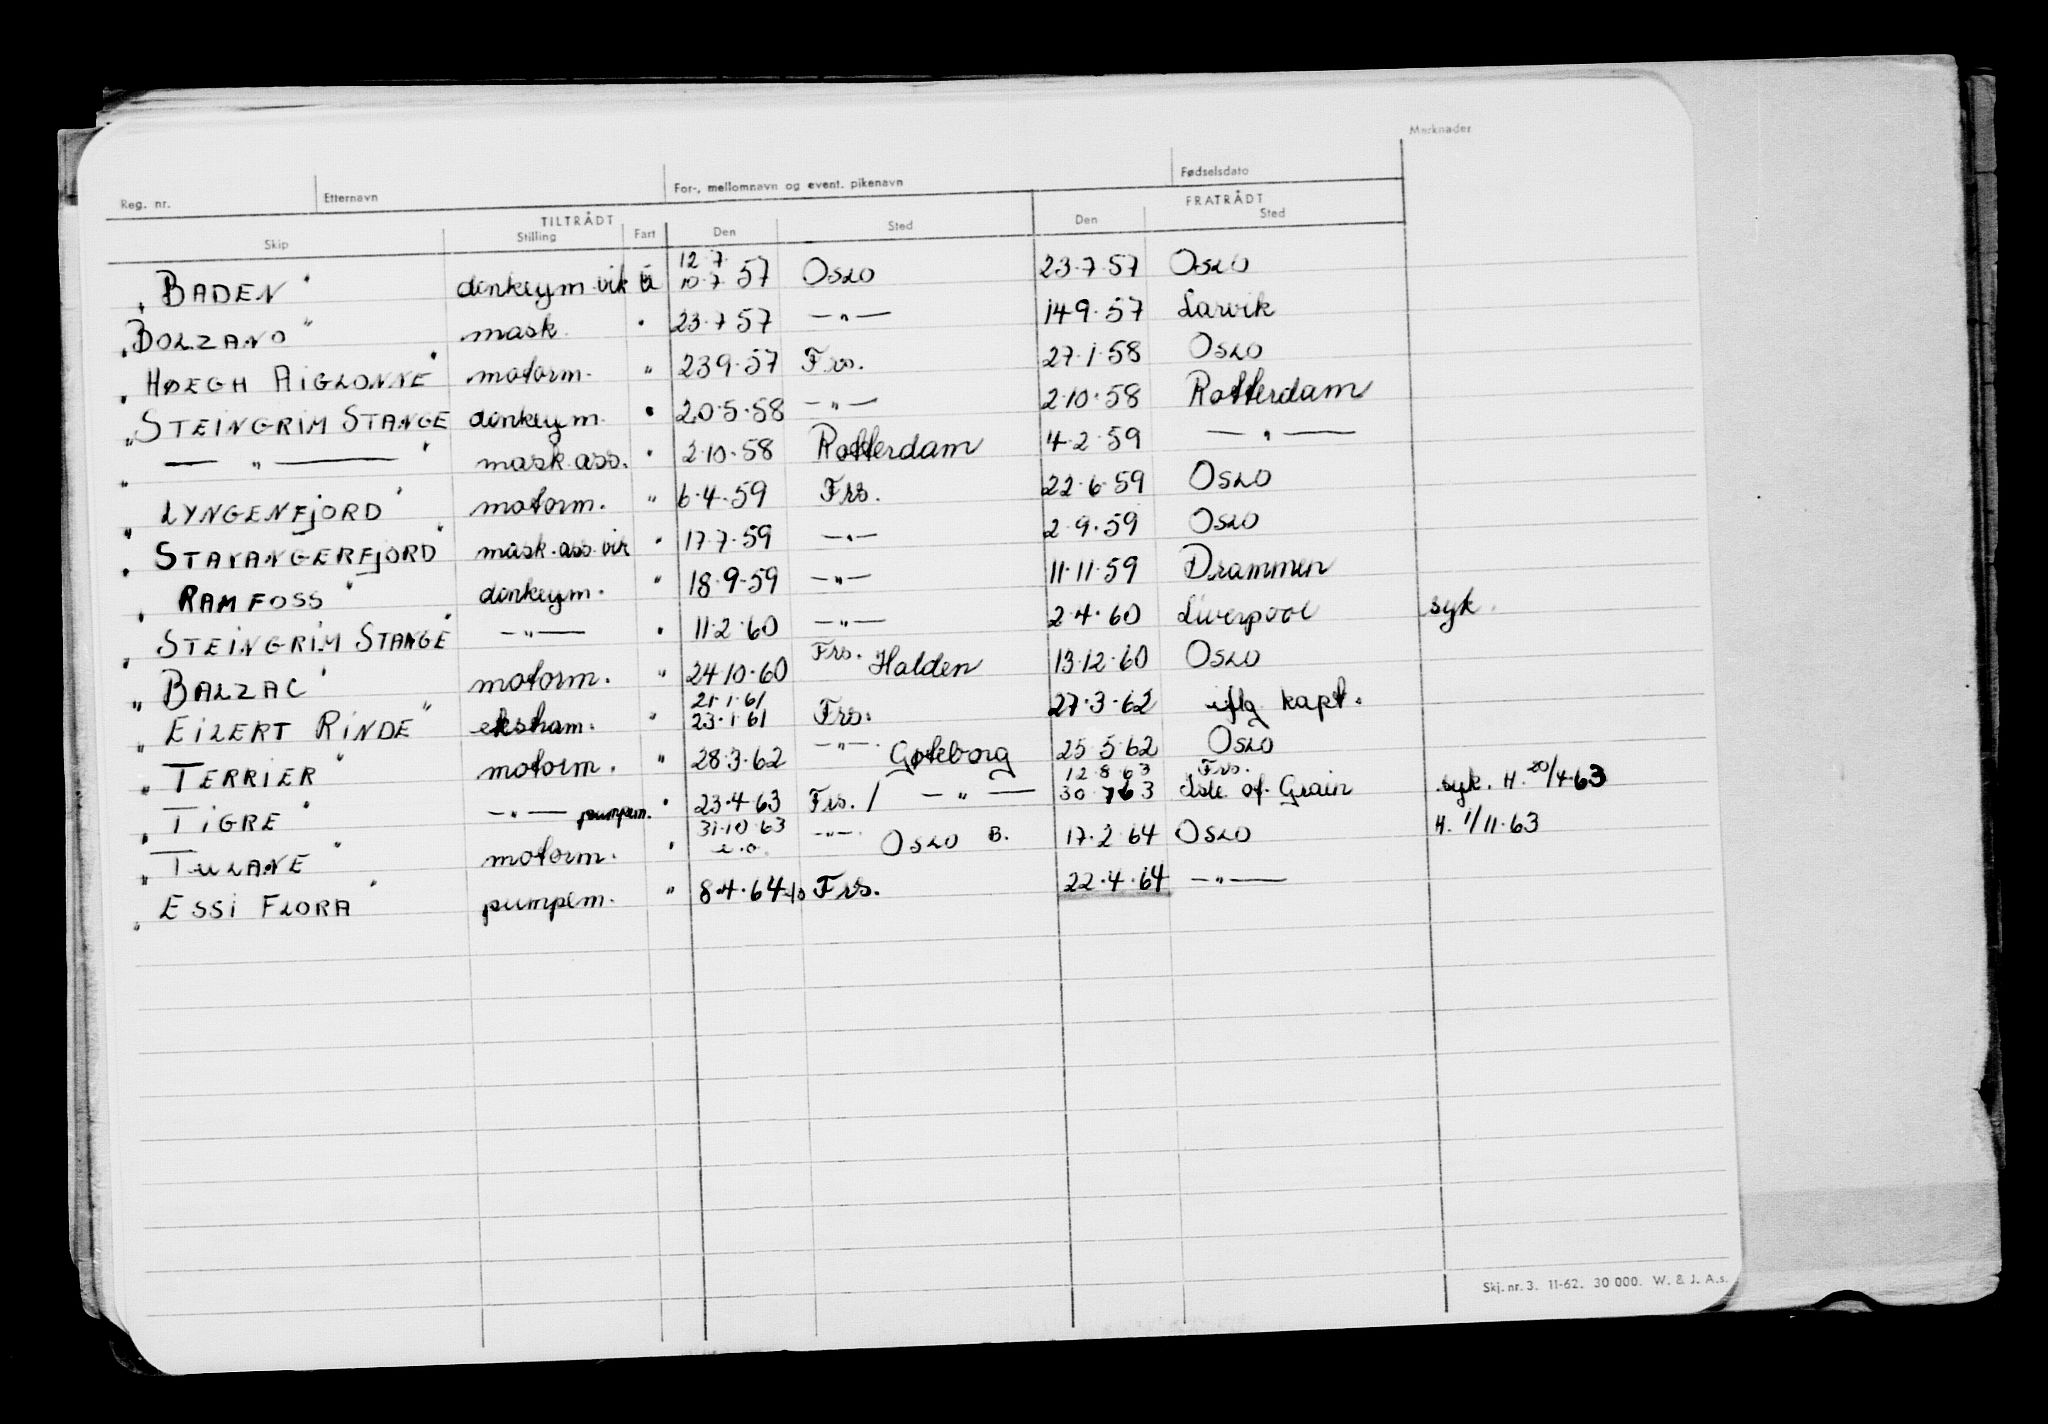 Merknader
Reg. nr. Etternavn For-, mellomnavn og event. pikenavn Fødselsdato
TILTRÅDT FRATRÅDT
Skip Stilling Fart Den Sted Den Sted
12.7
"BADEN" donkeym. vik u 10.7.57 Oslo 23.7.57 Oslo
"BOLZANO" mask. " 23.7.57 — " — 14.9.57 Larvik
"HØEGH AIGLONNE" motorm. " 23.9.57 Frs. 27.1.58 Oslo
"STEINGRIM STANGE donkeym. " 20.5.58 — " — 2.10.58 Rotterdam
" — " — " mask.ass. " 2.10.58 Rotterdam 4.2.59 — " —
"LYNGENFJORD" motorm. " 6.4.59 Frs. 22.6.59 Oslo
"STAVANGERFJORD" mask.ass. vik " 17.7.59 — " — 2.9.59 Oslo
"RAMFOSS" donkeym. " 18.9.59 — " — 11.11.59 Drammen
"STEINGRIM STANGE" — " — " 11.2.60 — " — 2.4.60 Liverpool syk.
"BALZAC" motorm. " 24.10.60 Frs. Halden 13.12.60 Oslo
21.1.61
"EILERT RINDE" eksham. " 23.1.61 Frs. 27.3.62 iflg kapt.
"TERRIER" motorm. " 28.3.62 — " — Gøteborg 25.5.62 Oslo
12.8.63 Frs.
"TIGRE" — " — pumpem. " 23.4.63 Frs. / — " — 30.7.63 Isle of Grain syk. H. 20/4-63
31.10.63
"TULANE" motorm. " e.o. — " — Oslo B. 17.2.64 Oslo H. 1/11.63
"ESSI FLORA" pumpem. " 8.4.64 Frs. 22.4.64 — " —
Skj. nr. 3. 11-62. 30 000. W. & J. A.s.